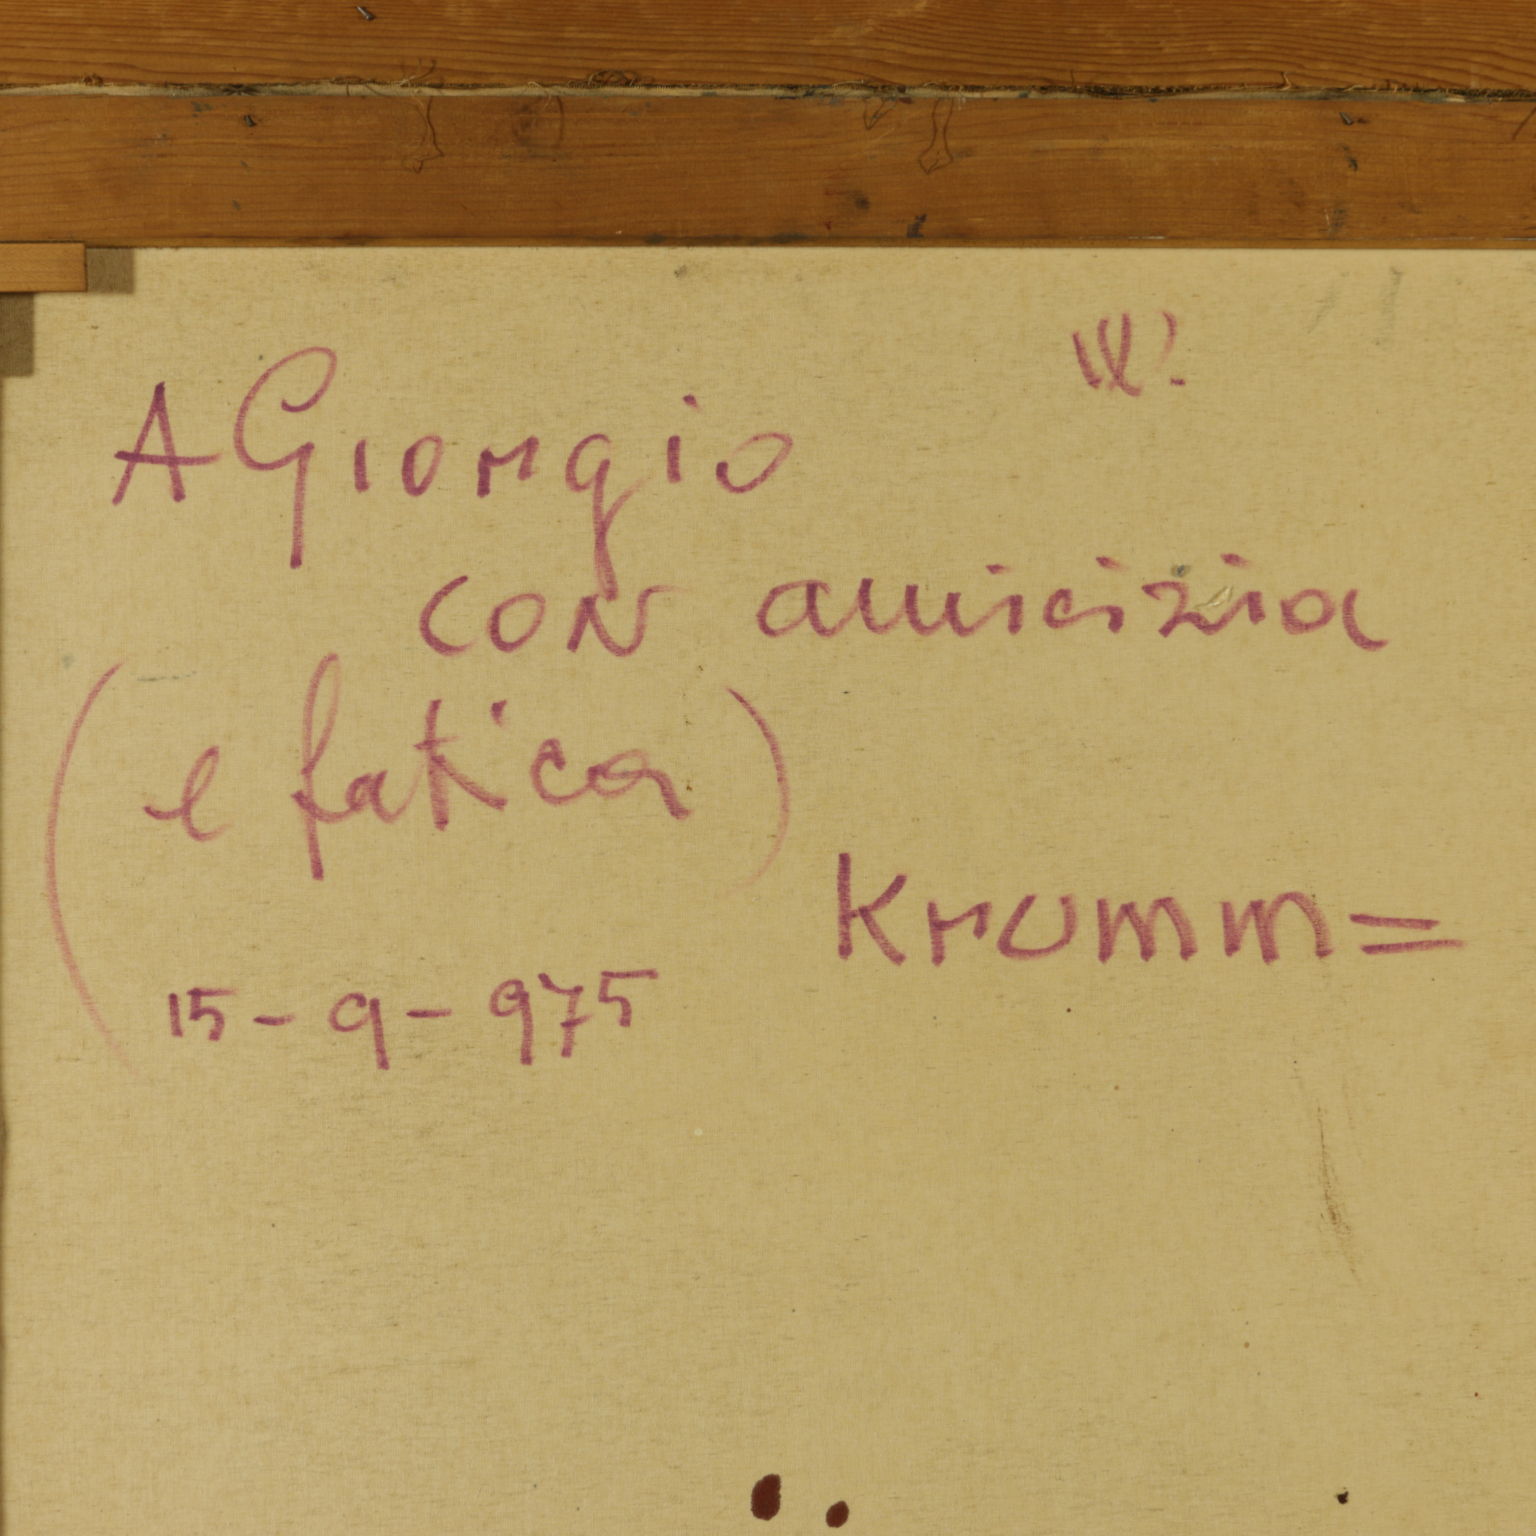 A Giorgio
con amicizia
(e fatica)
Krumm=
15-9-975